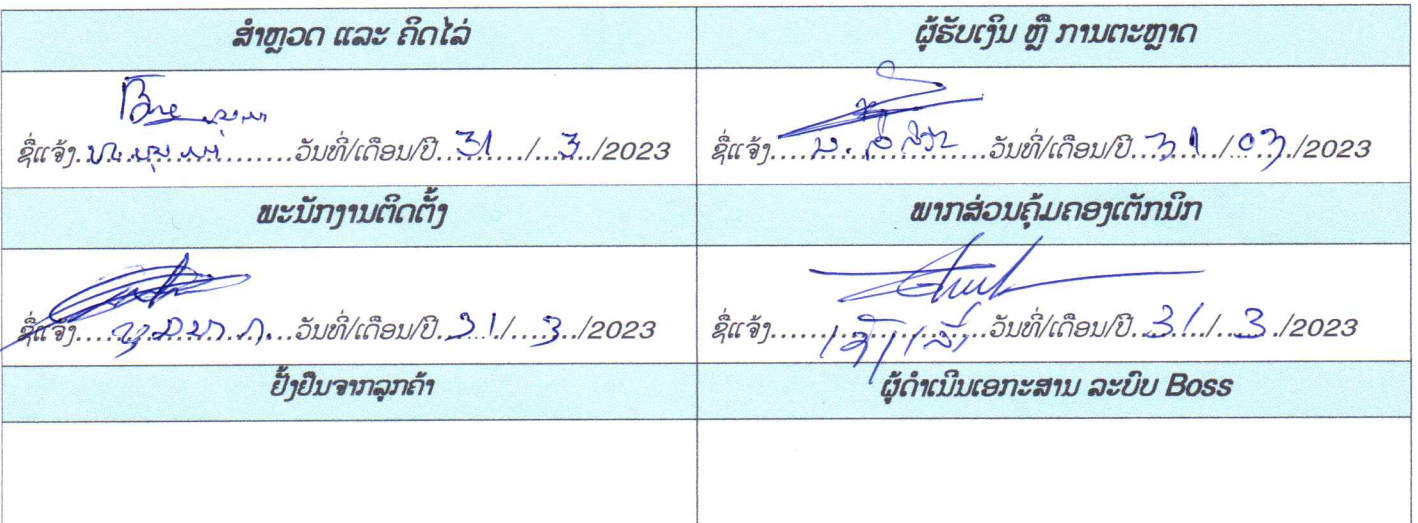 ສຳຫຼວດ ແລະ ຄິດໄລ່
ຜູ້ຮັບເງິນ ຫຼື ການຕະຫຼາດ
ຊື່ແຈ້ງ..................ວັນທີ່/ເດືອນ/ປີ...31...../...3../2023
ຊື່ແຈ້ງ..................ວັນທີ່/ເດືອນ/ປີ...31...../..03../2023
ພະນັກງານຕິດຕັ້ງ
ພາກສ່ວນຄຸ້ມຄອງເຕັກນິກ
ຊື່ແຈ້ງ..................ວັນທີ່/ເດືອນ/ປີ..31../....3../2023
ຊື່ແຈ້ງ..................ວັນທີ່/ເດືອນ/ປີ..31../..3../2023
ຢັ້ງຢືນຈາກລູກຄ້າ
ຜູ້ດຳເນີນເອກະສານ ລະບົບ Boss